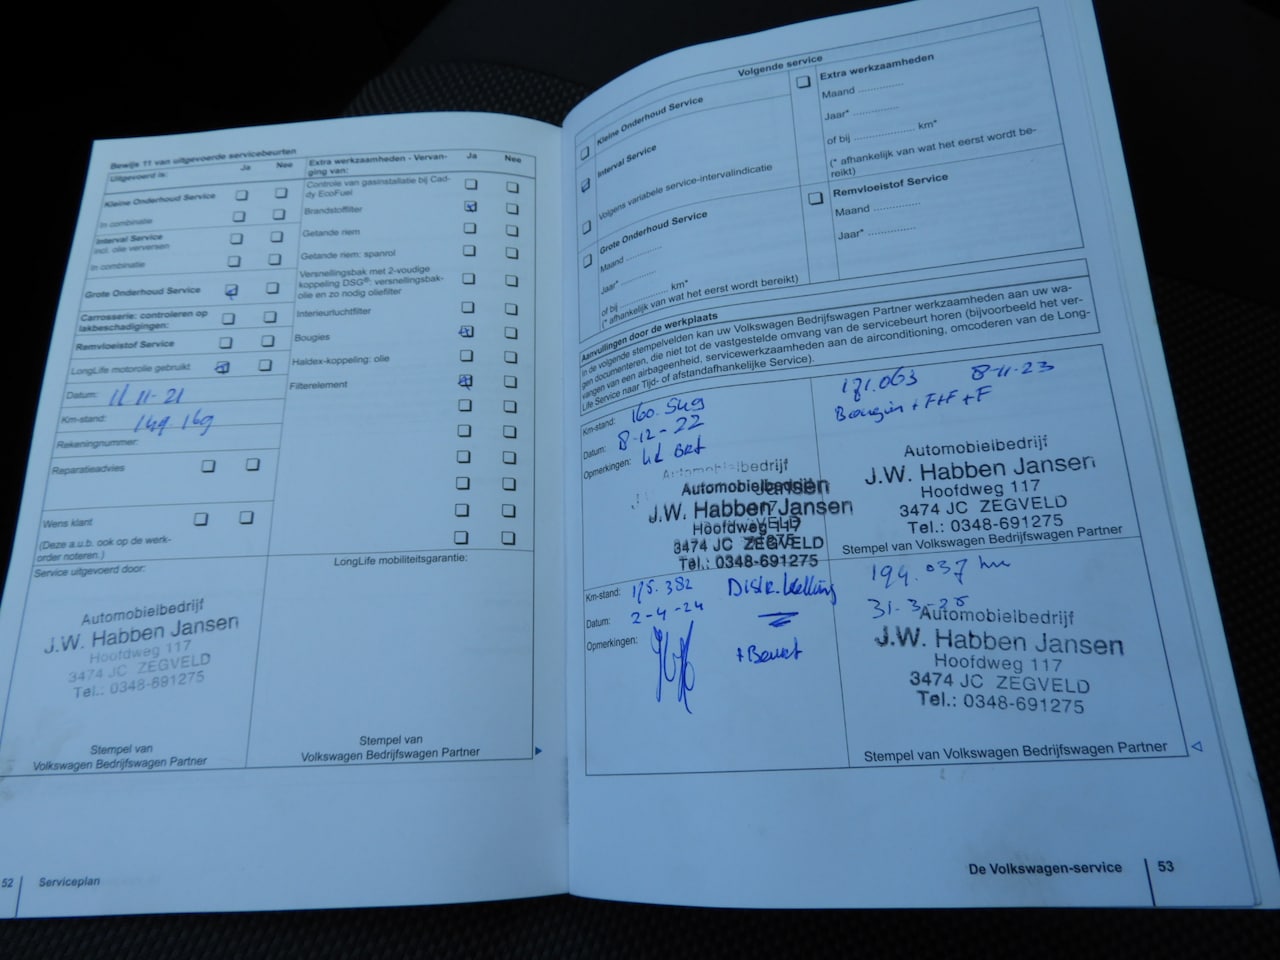 Bewijs 11 van uitgevoerde servicebeurten
Uitgevoerd is: Ja Nee
Kleine Onderhoud Service
In combinatie
Interval Service
incl. olie verversen
In combinatie
Grote Onderhoud Service
Carrosserie: controleren op
lakbeschadigingen:
Remvloeistof Service
LongLife motorolie gebruikt
Datum: 11-11-21
Km-stand: 149.169
Rekeningnummer:
Reparatieadvies
Wens klant
(Deze a.u.b. ook op de werk-
order noteren.)
Service uitgevoerd door:
Automobielbedrijf
J.W. Habben Jansen
Hoofdweg 117
3474 JC ZEGVELD
Tel.: 0348-691275
Stempel van
Volkswagen Bedrijfswagen Partner
Extra werkzaamheden - Vervan-
ging van: Ja Nee
Controle van gasinstallatie bij Cad-
dy EcoFuel
Brandstoffilter
Getande riem
Getande riem: spanrol
Versnellingsbak met 2-voudige
koppeling DSG®: versnellingsbak-
olie en zo nodig oliefilter
Interieurluchtfilter
Bougies
Haldex-koppeling: olie
Filterelement
LongLife mobiliteitsgarantie:
Stempel van
Volkswagen Bedrijfswagen Partner
52 Serviceplan
Volgende service
Kleine Onderhoud Service
Interval Service
Volgens variabele service-intervalindicatie
Grote Onderhoud Service
Maand ............
Jaar* ............
of bij ................ km*
(* afhankelijk van wat het eerst wordt bereikt)
Extra werkzaamheden
Maand ..............
Jaar* ..............
of bij .................... km*
(* afhankelijk van wat het eerst wordt be-
reikt)
Remvloeistof Service
Maand ..............
Jaar* ..............
Aanvullingen door de werkplaats
In de volgende stempelvelden kan uw Volkswagen Bedrijfswagen Partner werkzaamheden aan uw wa-
gen documenteren, die niet tot de vastgestelde omvang van de servicebeurt horen (bijvoorbeeld het ver-
vangen van een airbageenheid, servicewerkzaamheden aan de airconditioning, omcoderen van de Long-
Life Service naar Tijd- of afstandafhankelijke Service).
Km-stand: 160.549
Datum: 8-12-22
Opmerkingen:
Automobielbedrijf
J.W. Habben Jansen
Hoofdweg 117
3474 JC ZEGVELD
Tel.: 0348-691275
171.063 8-11-23
Bougies + F+F+F
Automobielbedrijf
J.W. Habben Jansen
Hoofdweg 117
3474 JC ZEGVELD
Tel.: 0348-691275
Stempel van Volkswagen Bedrijfswagen Partner
Km-stand: 175.382 Distr. ketting
Datum: 2-4-24
Opmerkingen: + Beurt
194.037 km
Automobielbedrijf
J.W. Habben Jansen
Hoofdweg 117
3474 JC ZEGVELD
Tel.: 0348-691275
Stempel van Volkswagen Bedrijfswagen Partner
De Volkswagen-service 53